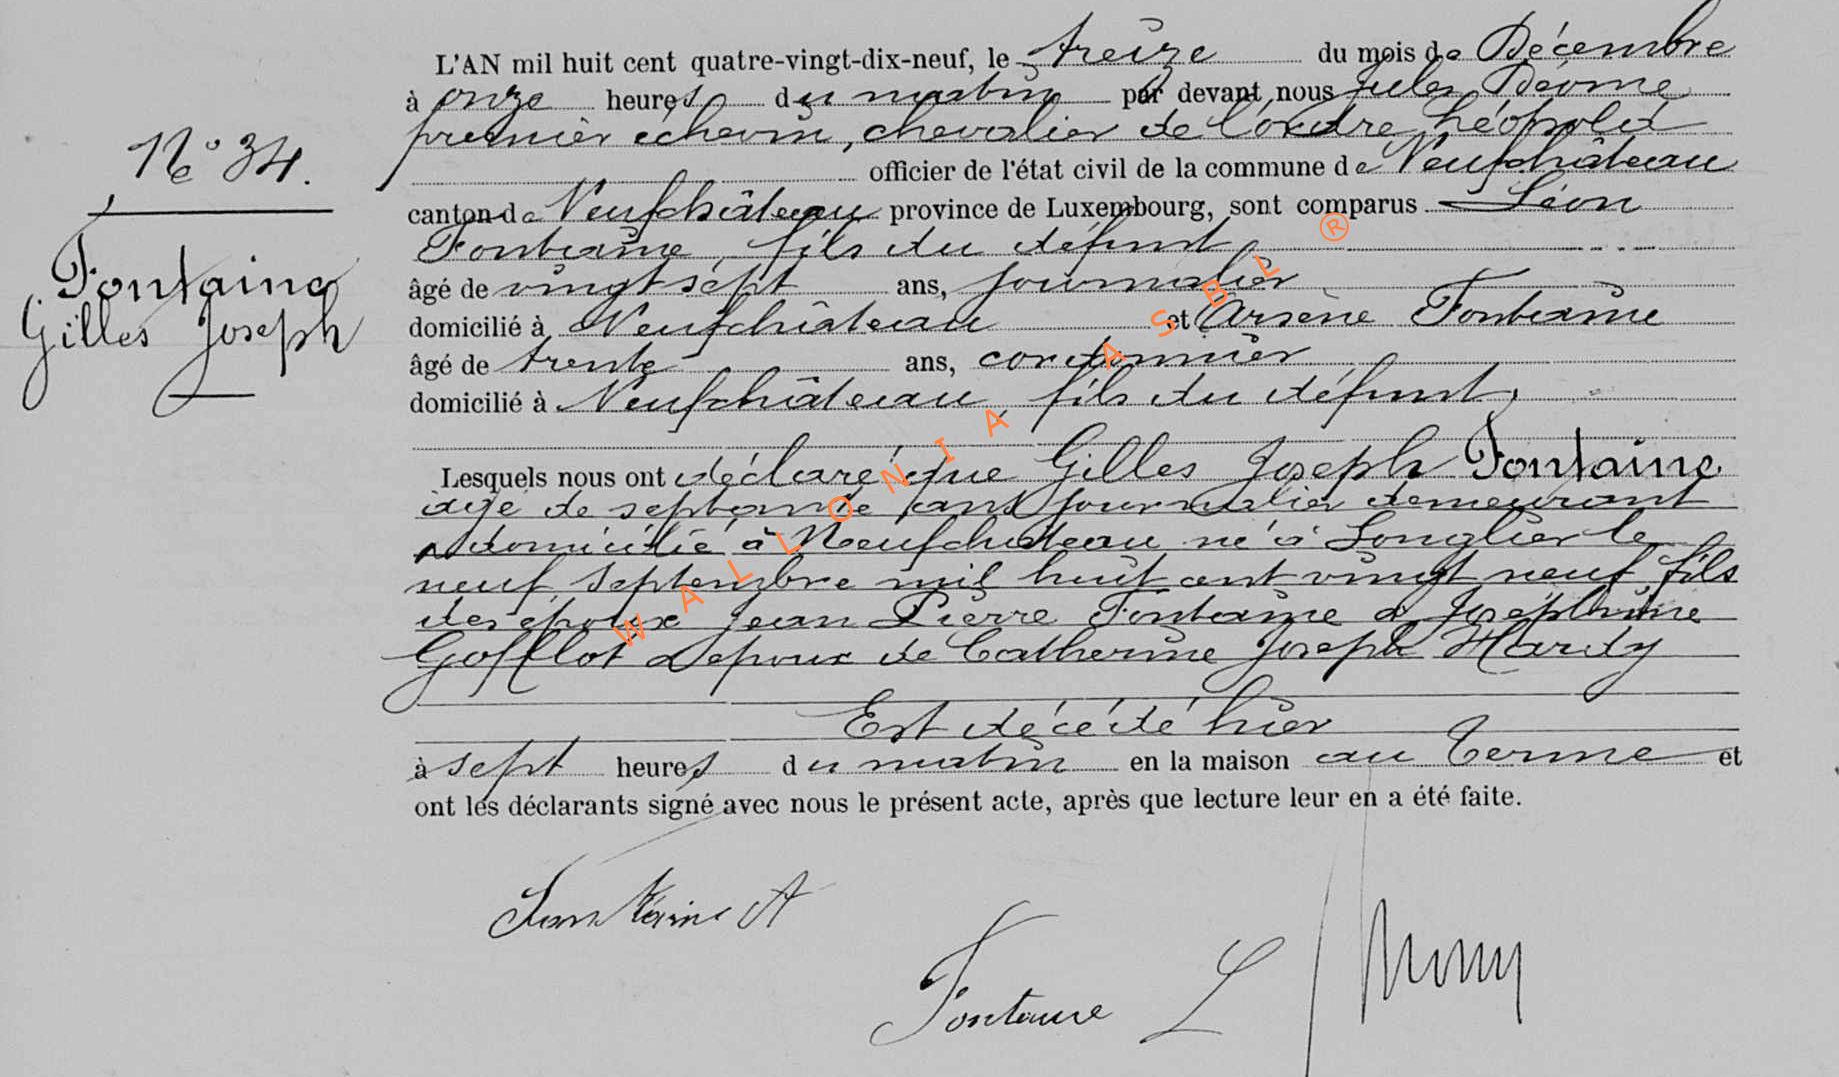 L'AN mil huit cent quatre-vingt-dix-neuf, le treize du mois de Décembre
à onze heures du matin par devant nous Jules
premier échevin, chevalier de l'ordre Léopold
officier de l'état civil de la commune de Neufchâteau
canton de Neufchâteau province de Luxembourg, sont comparus Léon
Fontaine, fils du défunt,
âgé de vingt sept ans, journalier
domicilié à Neufchâteau et Arsène Fontaine
âgé de trente ans, cordonnier
domicilié à Neufchâteau, fils du défunt,
N° 34.
Fontaine
Gilles Joseph
Lesquels nous ont déclaré que Gilles Joseph Fontaine
âgé de septante ans journalier demeurant
domicilié à Neufchâteau né à Longlier le
neuf Septembre mil huit cent vingt neuf, fils
des époux Jean Pierre Fontaine & Joséphine
Gofflot & époux de Catherine Joseph Hardy
Est décédé hier
à sept heures du matin en la maison au Terme et
ont les déclarants signé avec nous le présent acte, après que lecture leur en a été faite.
Fontaine A
Fontaine L
WALLONIA ASBL ®